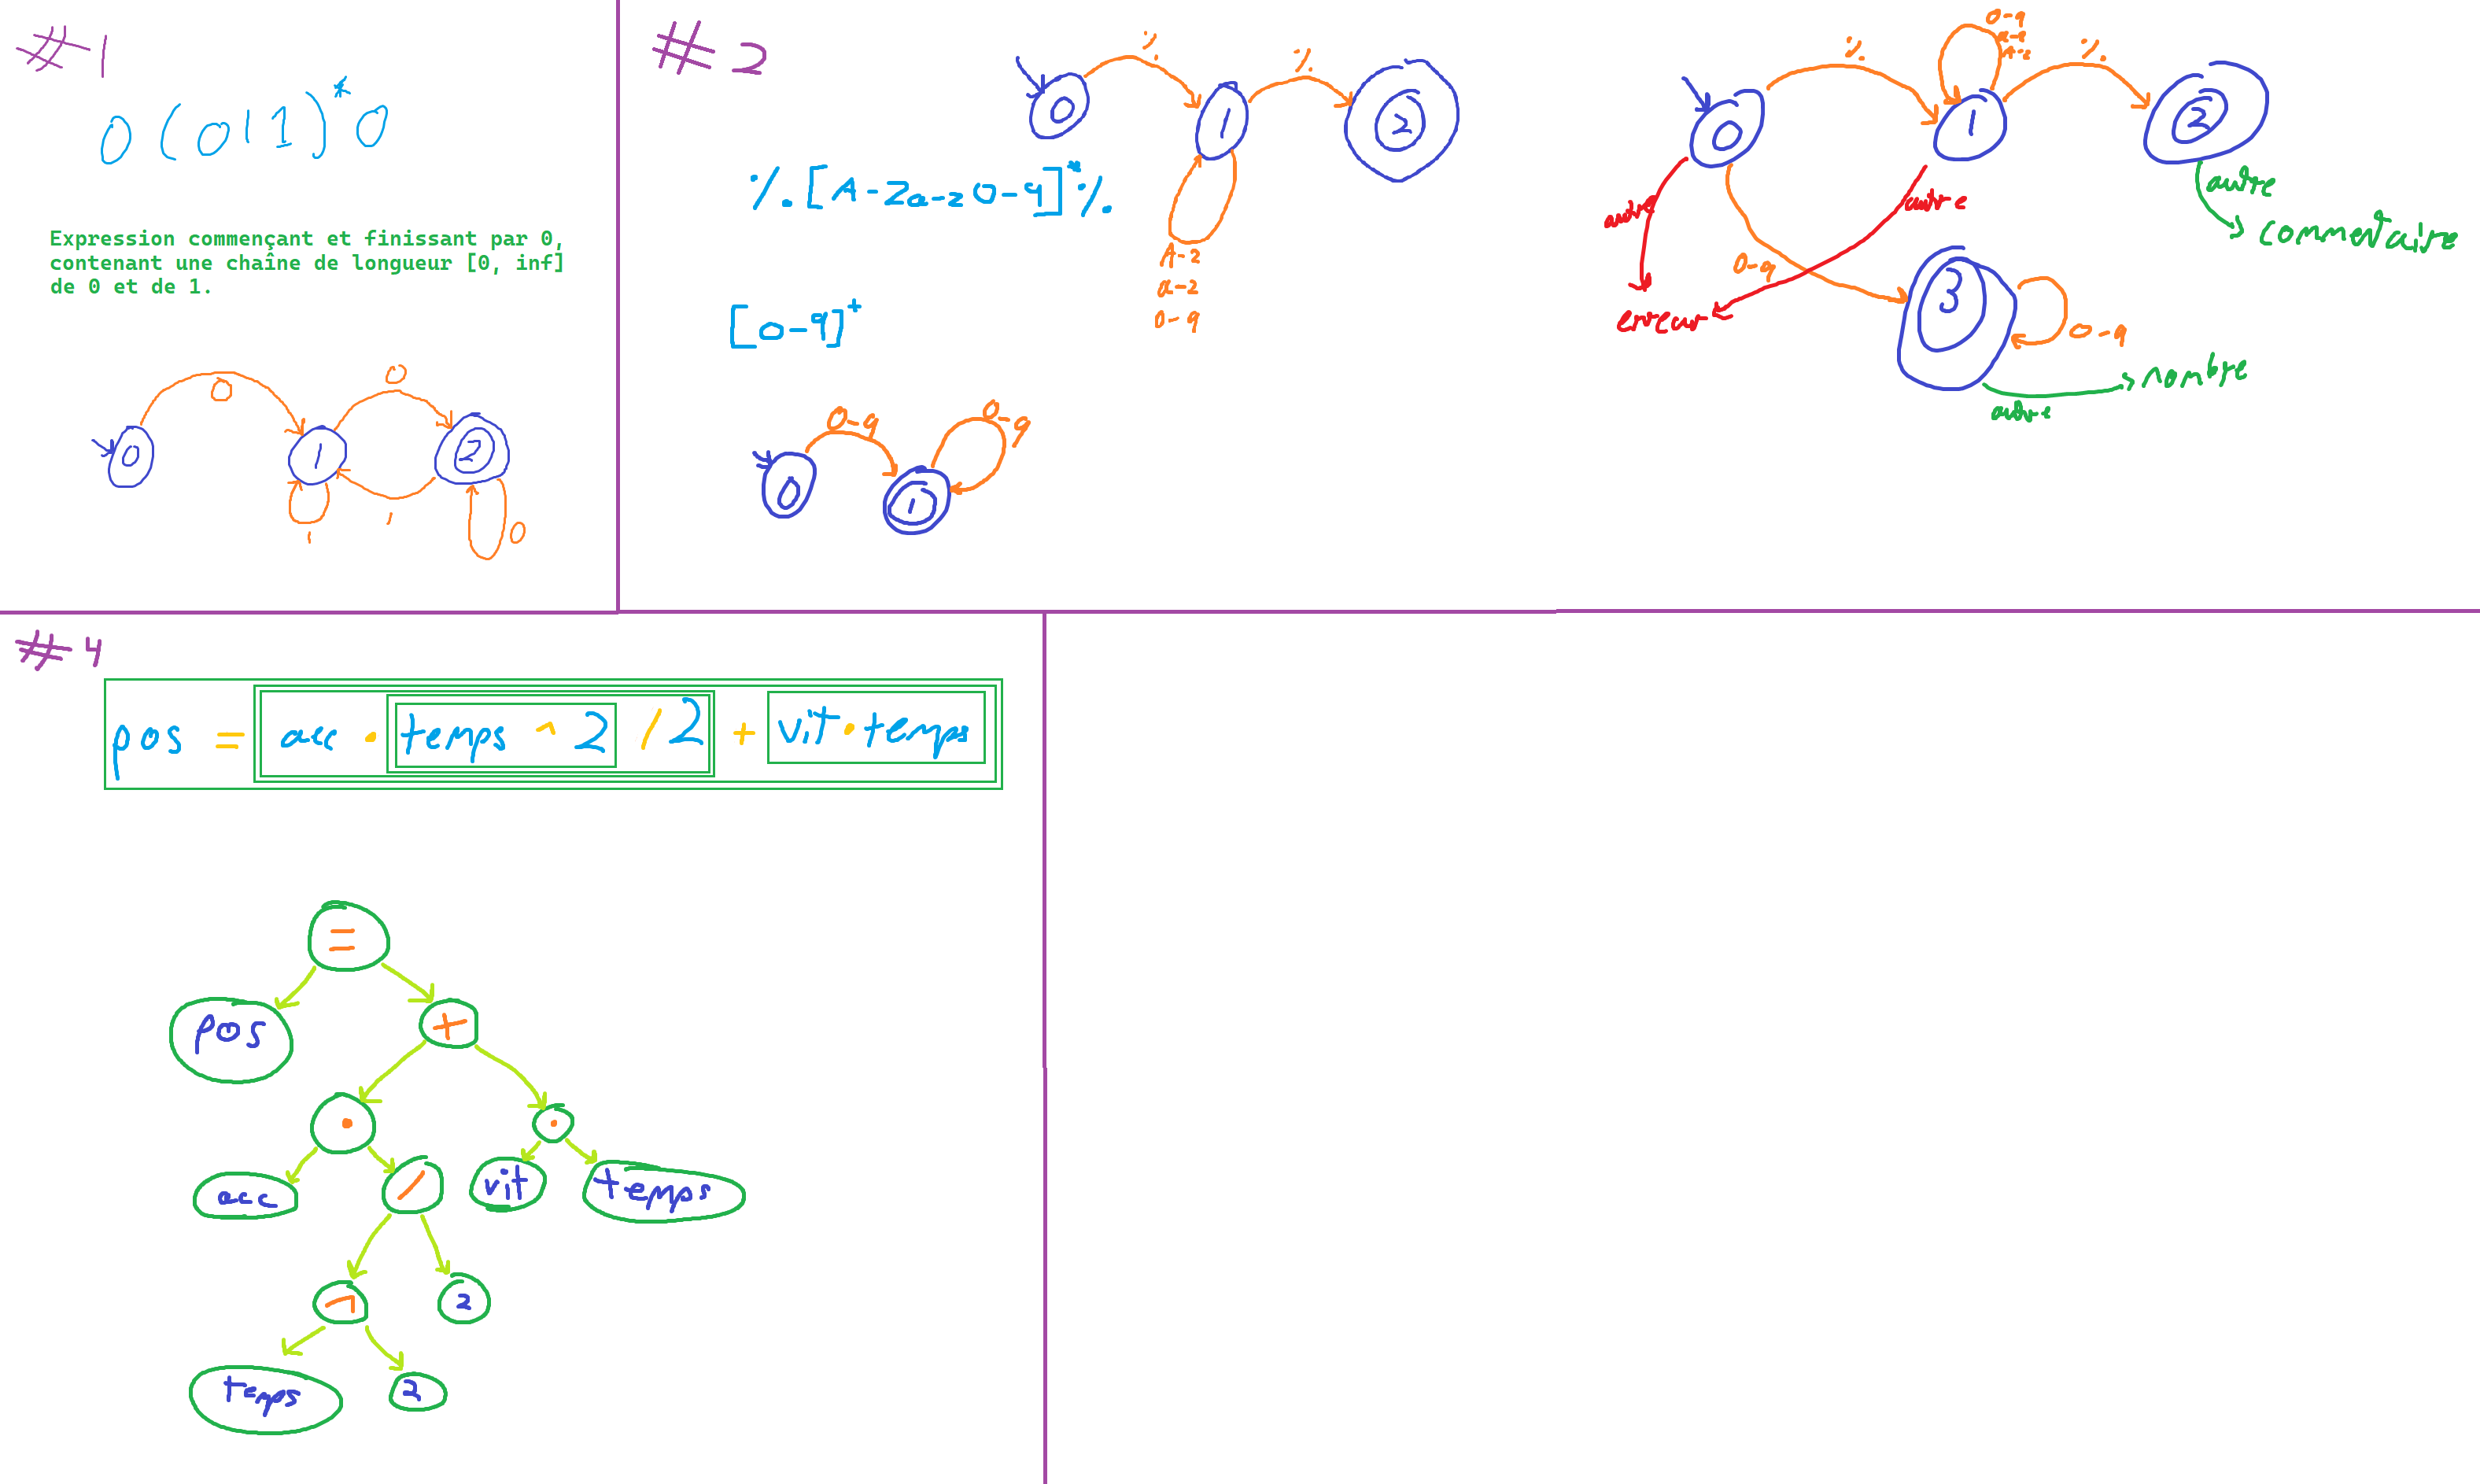 #1
0(0|1)*0
Expression commençant et finissant par 0,
contenant une chaîne de longueur [0, inf]
de 0 et de 1.
0
0
0
1
2
1
1
0
#2
%
%
0
1
2
%[A-Za-z0-9]*%
A-Z
a-z
0-9
[0-9]+
0-9
0-9
0
1
%
0-9
a-z
A-Z
%
0
1
2
autre
autre
autre
commentaire
0-9
3
erreur
0-9
nombre
autre
#4
pos = acc • temps ^ 2 / 2 + vit • temps
=
pos
+
•
•
acc
/
vit
temps
^
2
temps
2